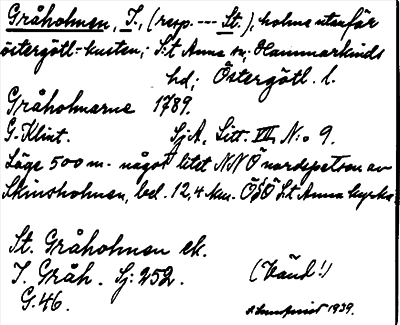 Gråholmen, I., (resp. --- St.), holme utanför
östergötl.-kusten; S:t Anna sn; Hammarkinds
hd; Östergötl. l.
Gråholmarne 1789.
G. Klint. SjA, Litt. VII, N:o 9.
Läge 500 m. något litet NNÖ nordspetsen av
Skinsholmen, bel. 12,4 km. ÖSÖ S:t Anna kyrka.
St. Gråholmen ek.
I. Gråh. Sj: 252. (Vänd!)
G. 46. 1939.